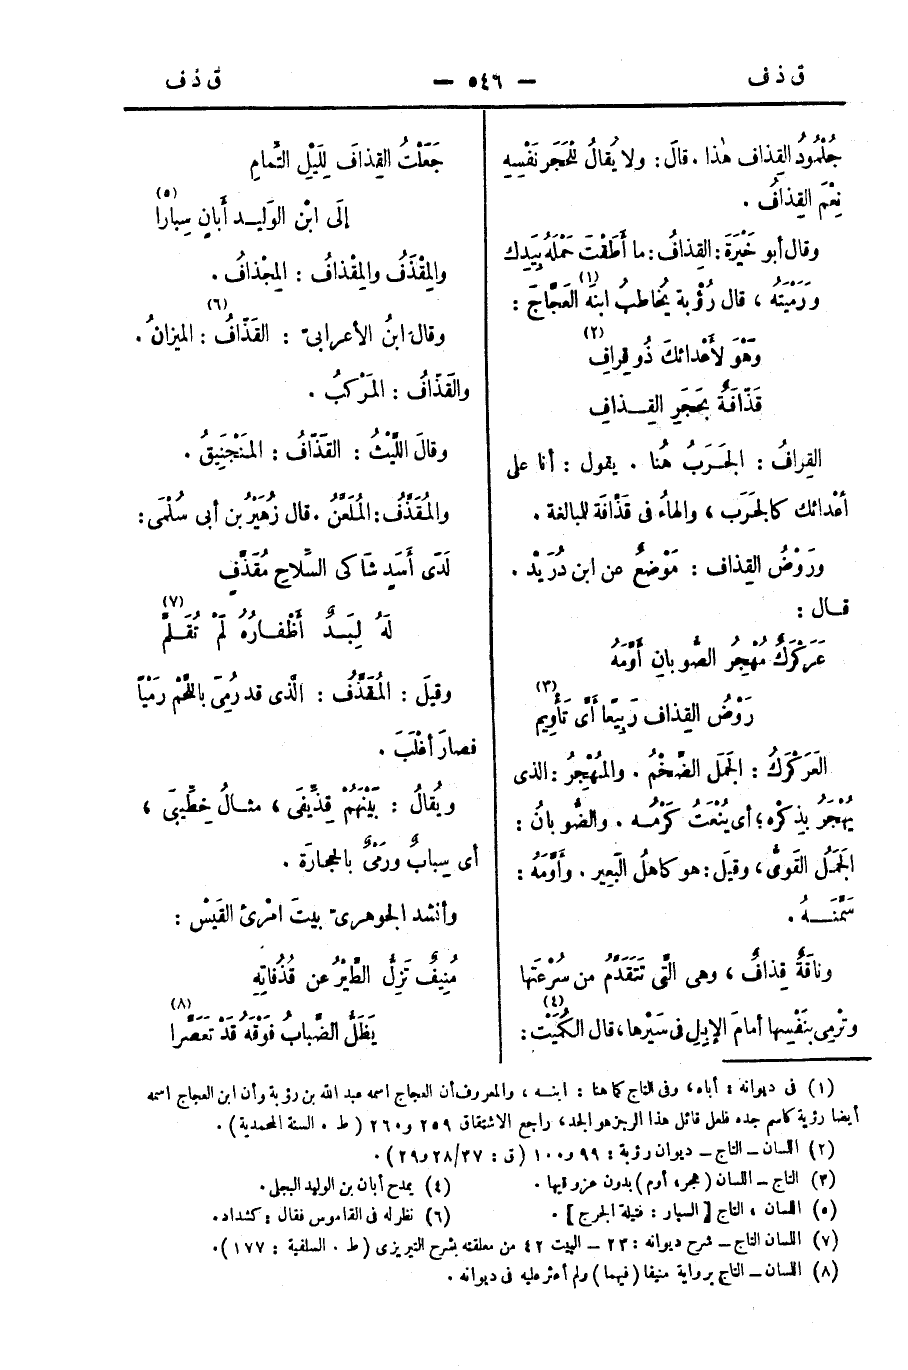 ق ذ ف
— ٥٤٦ —
ق ذ ف
جُلْمُودُ القِذاف هٰذا . قالَ : ولا يُقالُ لِلْحَجَرِ نَفْسِهِ
نِعْمَ القِذافُ .
وقال أبو خَيْرَةَ : القِذافُ : ما أَطَقْتَ حَمْلَهُ بِيَدِك
ورَمَيْتَهُ ، قال رُؤْبة يُخاطبُ ابنَه (١) العَجَّاجَ :
وَهْوَ لأَعْدائكَ ذُو قِرافِ (٢)
قَذّافَةٌ بحَجَرِ القِـذافِ
القِرافُ : الجَرَبُ هُنا . يقول : أنا على
أَعْدائك كالجَرَب ، والهاءُ فى قَذّافَة للمبالغة .
ورَوْضُ القِذاف : مَوْضعٌ عن ابن دُرَيْدْ .
قـال :
عَرَكْرَكٌ مُهْجِرُ الضُّوبانِ أَوَّمَهُ
رَوْضُ القِذاف رَبِيعًا أَىَّ تَأْوِيمِ (٣)
العَرَكْرَكُ : الجَمَل الضَّخْمُ . والمُهْجِرُ : الذى
يُهْجَرُ بِذِكْرِه ؛ أى يُنْعَتُ كَرْمُـه . والضُّوبانُ :
الجَمَلُ القَوِىُّ ، وقيلَ : هو كاهلُ البَعِيرِ . وأَوَّمَهُ :
سَمَّنَــهُ .
وناقَةٌ قِذافٌ ، وهى الَّتى تَتَقَدَّمُ من سُرْعَتها
وتَرْمِى بنَفْسِها أمامَ الإبِلِ فى سَيْرها ، قال الكُمَيْت (٤) :
جَعَلْتُ القِذافَ لِلَيْلِ التِّمامِ
إلَى ابْنِ الوَلِيـد أَبانٍ سِبارا (٥)
والمِقْذَفُ والمِقْذافُ : المِجْذافُ .
وقال ابنُ الأعرابىّ : القَذّافُ (٦) : الميزانُ .
والقَذّافُ : المَرْكبُ .
وقالَ اللَّيْثُ : القَذّافُ : المَنْجَنِيقُ .
والمُقَذَّفُ : المُلَعَّنُ . قال زُهَيْرُ بن أبى سلْمَى :
لَدَى أَسَدٍ شاكى السِّلاحِ مُقَذَّفٍ
لَهُ لِبَـدٌ أَظْفـارُهُ لَمْ تُقَـلَّمِ (٧)
وقيلَ : المُقَذَّفُ : الَّذى قد رُمِىَ باللَّحْمِ رَمْياً
فصارَ أغْلَبَ .
ويُقالُ : بَيْنَهُمْ قِذِّيفَى ، مثـالُ خِطِّيبَى ،
أى سِبابٌ ورَمْىٌ بالحِجارَة .
وأنشد الجوهرىّ بيتَ امْرِئ القَيْس :
مُنِيفٌ تَزِلُّ الطَّيْرُ عن قُذُفاتِهِ
يَظَلُّ الضَّبابُ فَوْقَهُ قَدْ تَعَصَّرا (٨)
(١) فى ديوانه : أباه ، وفى التاج كما هنا : ابنـه ، والمعروف أن العجاج اسمه عبد الله بن رؤبة وأن ابن العجاج اسمه
أيضا رؤبة كاسم جده فلعل قائل هذا الرجز هو الجد ، راجع الاشتقاق ٢٥٩ و ٢٦٠ ( ط . السنة المحمدية ) .
(٢) اللسان ـ التاج ـ ديوان رؤبة : ٩٩ و ١٠٠ ( ق : ٣٧/ ٢٨ و ٢٩ ) .
(٣) التاج ـ اللسان ( هجر ، أوم ) بدون عزو فيها .
(٤) يمدح أبان بن الوليد البجلى .
(٥) اللسان ، التاج [ السبار : فتيلة الجرح ] .
(٦) نظر له فى القاموس فقال : كشداد .
(٧) اللسان التاج ـ شرح ديوانه : ٢٣ ـ البيت ٤٢ من معلقته بشرح التبريزى ( ط . السلفية : ١٧٧ ) .
(٨) اللسان ـ التاج برواية منيفا ( فيهما ) ولم أعثر عليه فى ديوانه .